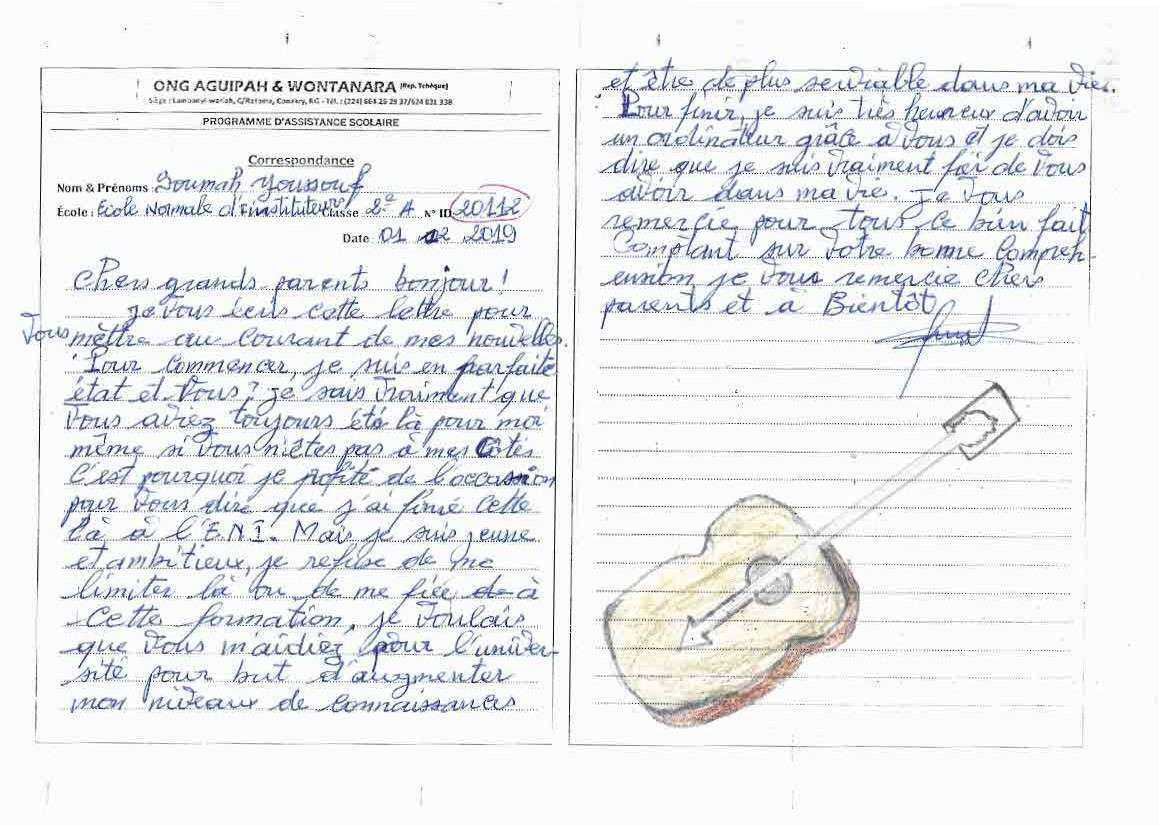 ONG AGUIPAH & WONTANARA (Rep. Tchèque)
PROGRAMME D'ASSISTANCE SCOLAIRE
Correspondance
Nom & Prénoms : Soumah Youssouf
École : Ecole Normale d'Instituteurs Classe : 2e A N° ID 20112
Date 01 02 2019
Chers grands parents bonjour!
Je vous écris cette lettre pour
vous mèttre au courant de mes nouvelles.
Pour commencer, je suis en parfaite
état et vous? je sais vraiment que
vous aviez toujours été là pour moi
même si vous n'iêtes pas à mes côtés
C'est pourquoi je profite de l'occasion
pour vous dire que j'ai finié cette
là à l'E.N.I. Mais je suis jeune
et ambitieux, je refuse de me
limiter là ou de me fiée de à
cette formation, je voulais
que vous m'aidiez pour l'univer-
sité pour but d'augmenter
mon niveaux de connaissances
et être de plus serviable dans ma vies.
Pour finir, je suis très heureux d'avoir
un ordinateur grâce à vous et je dois
dire que je suis vraiment fier de vous
avoir dans ma vie. Je vous
remercie pour tous ce bien fait
Comptant sur votre bonne compreh-
ension je vous remercie chers
parents et à Bientôt